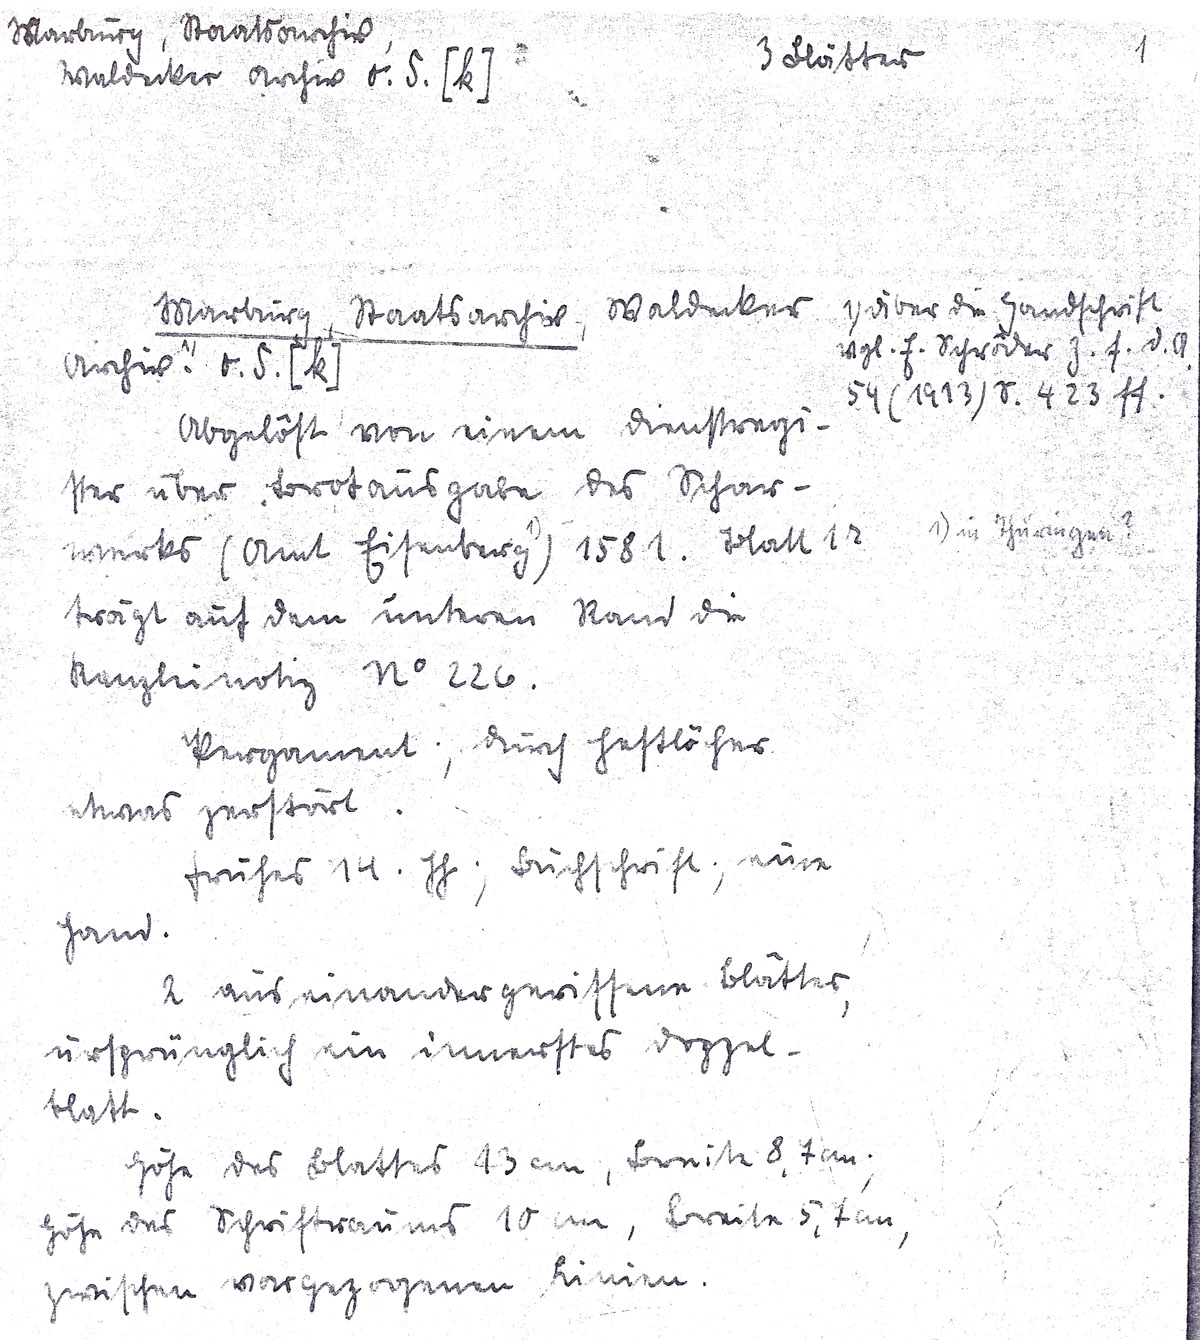 Marburg, Staatsarchiv,
Waldecker Archiv o. S. [k]
3 Blätter
1
Marburg, Staatsarchiv, Waldecker
Archiv¹⁾. o. S. [k]
1) über die Handschrift
vgl. E. Schröder Z. f. d. A.
54 (1913) S. 423 ff.
Abgelöst von einem Dienstregi-
ster über Brotausgabe des Schar-
werks (Amt Eisenberg¹⁾) 1581. Blatt 1r
1) in Thüringen?
trägt auf dem unteren Rand die
Kanzleinotiz N° 226.
Pergament; durch Heftlöcher
etwas zerstört.
frühes 14. Jh; Buchschrift; eine
Hand.
2 auseinandergerissene Blätter,
ursprünglich ein innerstes Doppel-
blatt.
Höhe des Blattes 13 cm, Breite 8,7 cm;
Höhe des Schriftraums 10 cm, Breite 5,7 cm,
zwischen vorgezogenen Linien.